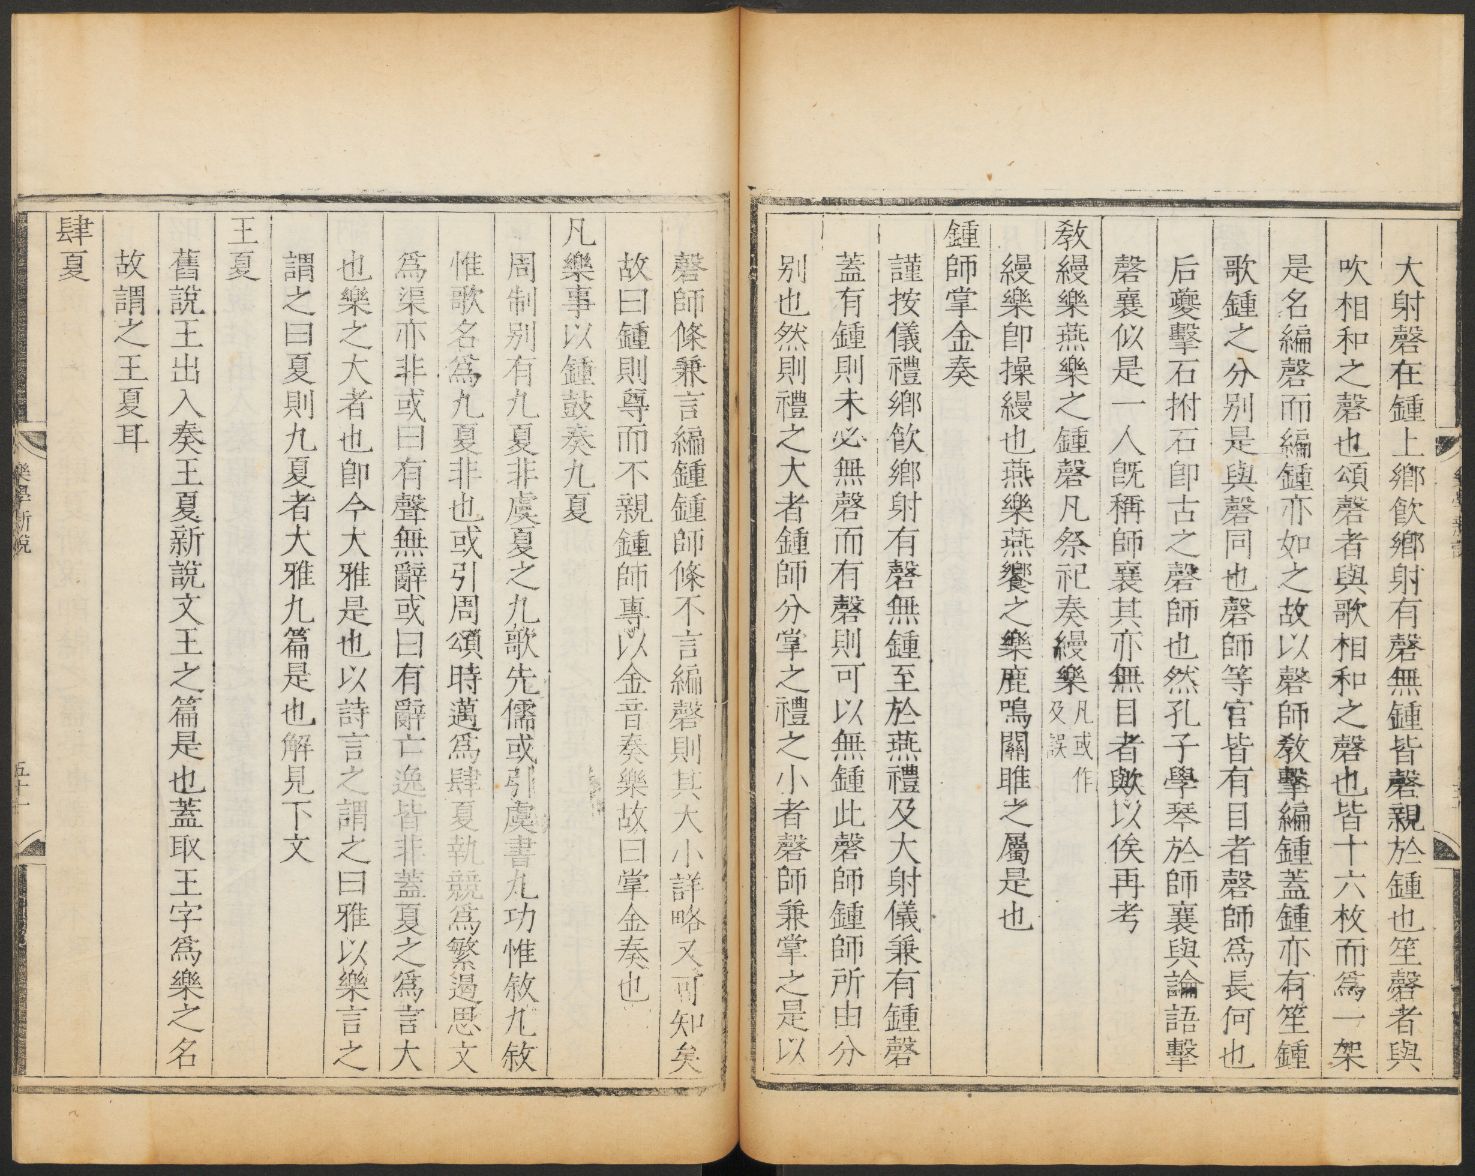 大射磬在鍾上鄉飮鄉射有磬無鍾皆磬親於鍾也笙磬者與
吹相和之磬也頌磬者與歌相和之磬也皆十六枚而爲一架
是名編磬而編鍾亦如之故以磬師敎擊編鍾蓋鍾亦有笙鍾
歌鍾之分别是與磬同也磬師等官皆有目者磬師爲長何也
后夔擊石拊石卽古之磬師也然孔子學琴於師襄與論語擊
磬襄似是一人旣稱師襄其亦無目者歟以俟再考
敎縵樂燕樂之鍾磬凡祭祀奏縵樂凡或作及誤
縵樂卽操縵也燕樂燕饗之樂鹿鳴關雎之屬是也
鍾師掌金奏
謹按儀禮鄉飮鄉射有磬無鍾至於燕禮及大射儀兼有鍾磬
蓋有鍾則未必無磬而有磬則可以無鍾此磬師鍾師所由分
别也然則禮之大者鍾師分掌之禮之小者磬師兼掌之是以
磬師條兼言編鍾鍾師條不言編磬則其大小詳略又可知矣
故曰鍾則尊而不親鍾師專以金音奏樂故曰掌金奏也
凡樂事以鍾鼓奏九夏
周制别有九夏非虞夏之九歌先儒或引虞書九功惟敘九敘
惟歌名爲九夏非也或引周頌時邁爲肆夏執競爲繁遏思文
爲渠亦非或曰有聲無辭或曰有辭亡逸皆非蓋夏之爲言大
也樂之大者也卽今大雅是也以詩言之謂之曰雅以樂言之
謂之曰夏則九夏者大雅九篇是也解見下文
王夏
舊說王出入奏王夏新說文王之篇是也蓋取王字爲樂之名
故謂之王夏耳
肆夏
樂學新說
五十一